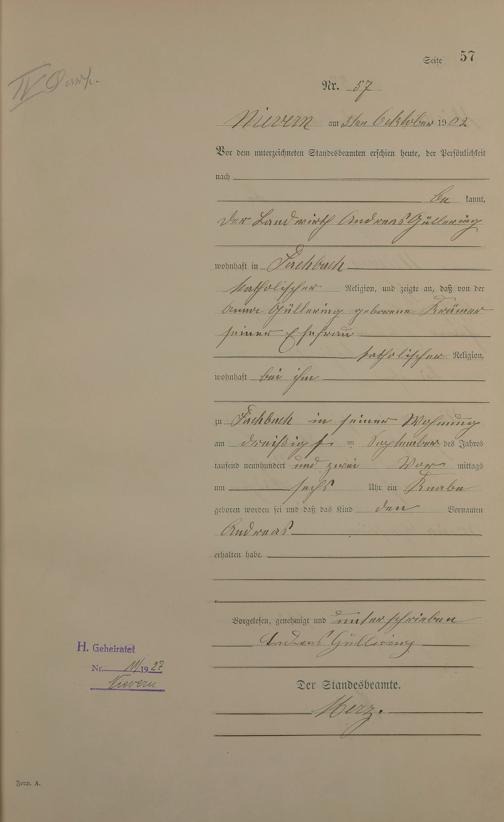 Seite 57
Nr. 57
Nievern am 2ten Oktober 1902
Vor dem unterzeichneten Standesbeamten erschien heute, der Persönlichkeit
nach
be kannt,
der Landwirth Andreas Güllering
wohnhaft in Fachbach
katholischer Religion, und zeigte an, daß von der
Anna Güllering geborene Krämer
seiner Ehefrau
katholischer Religion,
wohnhaft bei ihm
zu Fachbach in seiner Wohnung
am dreißigst = September des Jahres
tausend neunhundert und zwei Vor mittags
um sechs Uhr ein Knabe
geboren worden sei und daß das Kind den Vornamen
Andreas
erhalten habe.
Vorgelesen, genehmigt und unterschrieben
Andreas Güllering
Der Standesbeamte.
Merz.
H. Geheiratet
Nr. 11/1927
Nievern
Form. A.